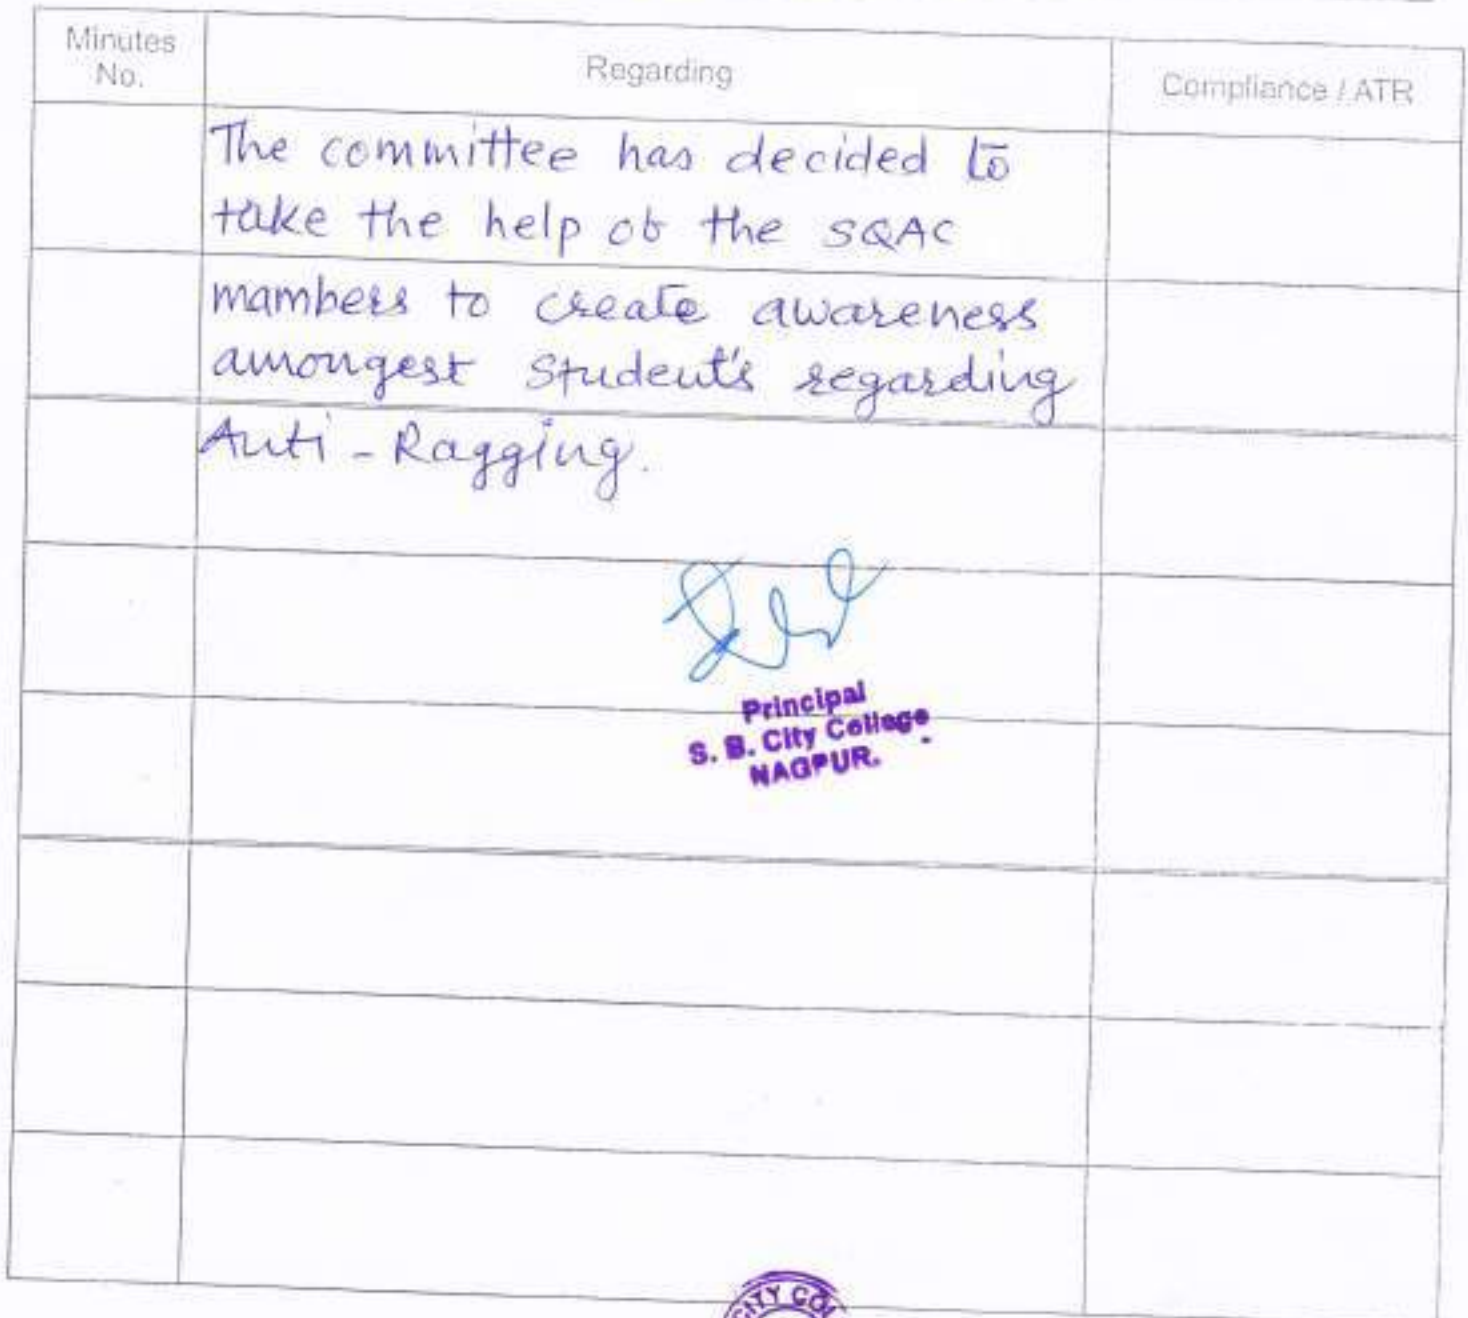 Minutes No.
Regarding
Compliance / ATR
The committee has decided to
take the help of the SQAC
mambers to create awareness
amongest Student's regarding
Anti - Ragging.
Principal
S. B. City College
NAGPUR.
CITY COL